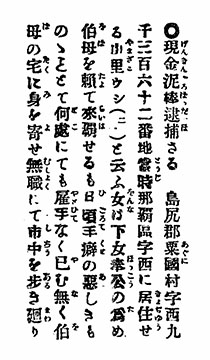 ◎現金泥棒逮捕さる　島尻郡粟國村字西九
千三百六十二番地當時那覇區字西に居住せ
る小里ウシ（二一）と云ふ女は下女奉公の爲め
伯母を頼て來覇せるも日頃手癖の惡しきも
のゝことて何處にても雇手なく已む無く伯
母の宅に身を寄せ無職にて市中を歩き廻り